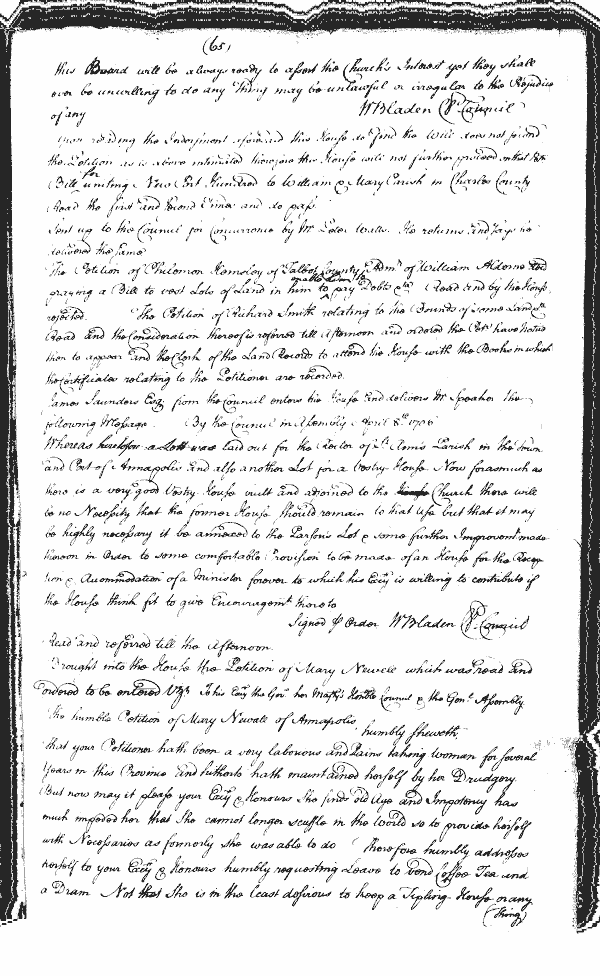 (65)
this Board will be always ready to assert the Church's Interest yet they shall
ever be unwilling to do any Thing may be unlawful or irregular to the Prejudice
of any W Bladen Cl Council
Upon reading the Indorsment aforesaid this House do find the Will does not
the Petition as is above intimated therefore this House will not further proceed on that
Bill for uniting New Port Hundred to William & Mary Parish in Charles County
Read the first and second Time and do pass
Sent up to the Council for Concurrence by Mr Peter Watts. He returns and says he
delivered the same
The Petition of Philemon Hemsley of Talbot County Admr of William Aldorne and
praying a Bill to vest Lots of Land in him enable him to pay Debts &ca Read and by the House
rejected. The Petition of Richard Smith relating to the Bounds of some Land &c
Read and the Consideration thereof is referred till Afternoon and ordered the Petr have notice
then to appear and the Clerk of the Land Records to attend the House with the Books in which
the Certificates relating to the Petitioner are recorded.
James Saunders Esqr from the Council enters the House and delivers Mr Speaker the
following Message. By the Council in Assembly April 8th 1706
Whereas heretofore a Lott was laid out for the Rector of St Ann's Parish in the Town
and Port of Annapolis and also another Lot for a Vestry House. Now forasmuch as
there is a very good Vestry House built and adjoined to the House Church there will
be no Necessity that the former House should remain to that Use but that it may
be highly necessary it be annexed to the Parson's Lot & some further Improvemt made
thereon in Order to some comfortable Provision to be made of an House for the Recep
tion & Accommodation of a Minister forever to which his Excy is willing to contribute if
the House think fit to give Encouragemt thereto
Signed p Order W Bladen Cl Council
Read and referred till the Afternoon.
Brought into the House the Petition of Mary Newell which was read and
ordered to be entered Vizt To his Excy the Govr her Majtys Honble Council & the Genl Assembly
The humble Petition of Mary Newell of Annapolis
humbly sheweth
that your Petitioner hath been a very labourous and Pains taking Woman for several
Years in this Province and hitherto hath maintained herself by her Drudgery
But now may it please your Excy & Honours she finds old Age and Impotency has
much impaired her that She cannot longer scuffle in the World so to provide herself
with Necessaries as formerly she was able to do Therefore humbly addresses
herself to your Excy & Honours humbly requesting Leave to vend Coffee Tea and
a Dram Not that She is in the least desirous to keep a Tipling House or any
(thing)